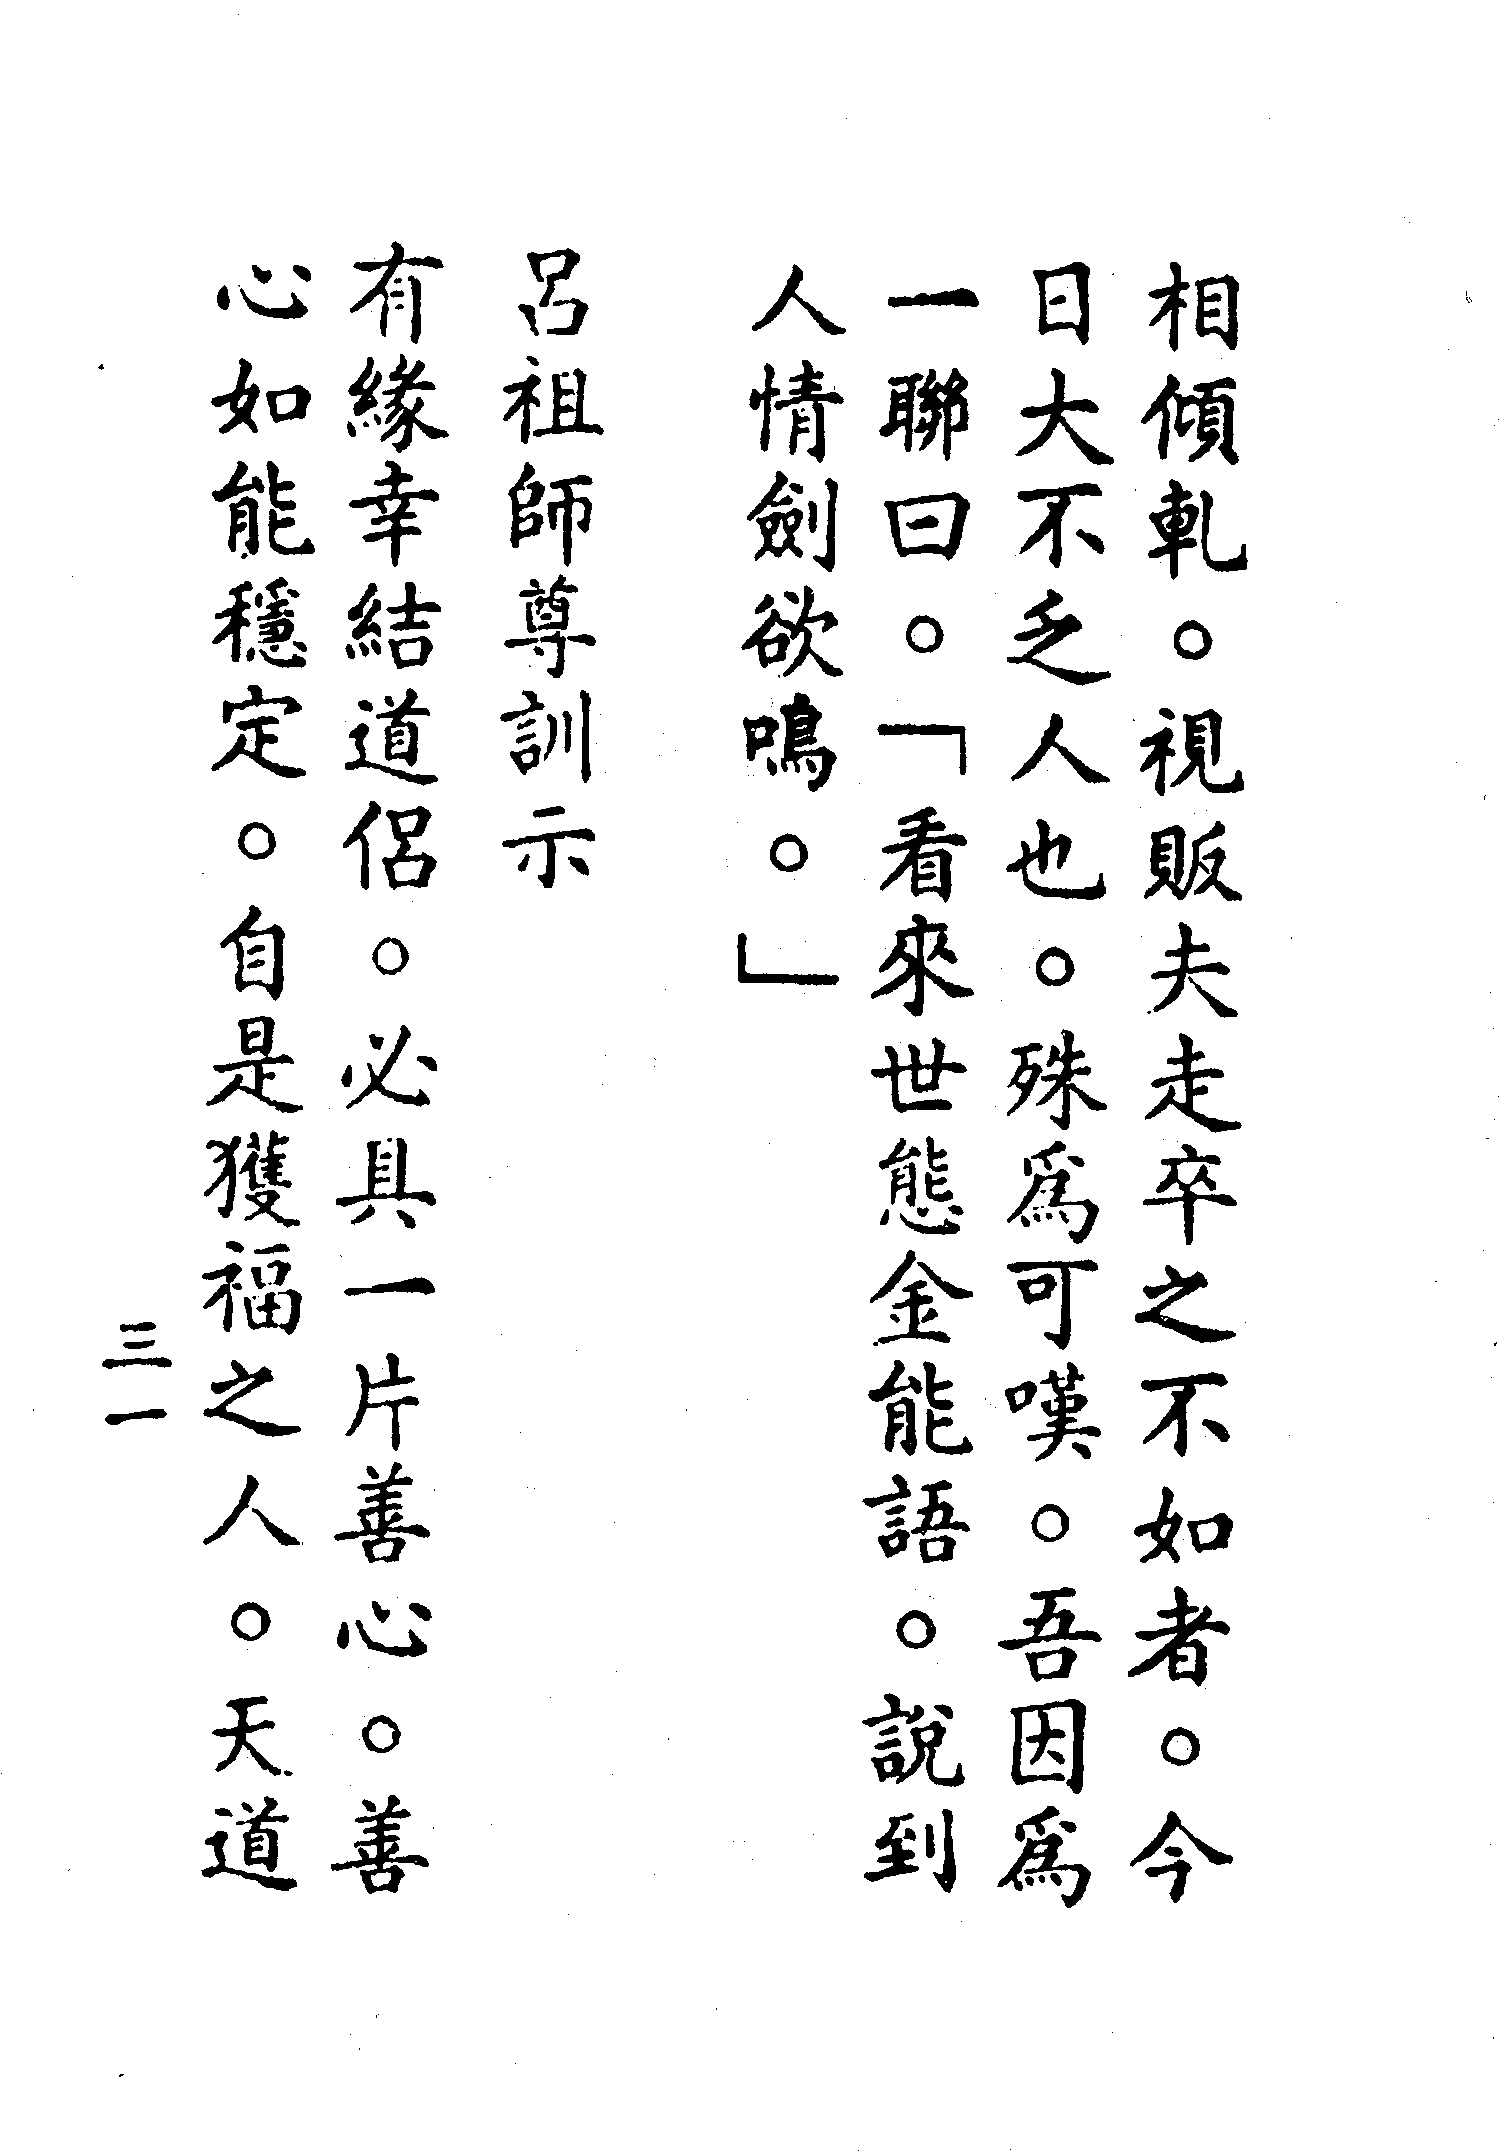 相傾軋。視販夫走卒之不如者。今
日大不乏人也。殊爲可嘆。吾因爲
一聯曰。「看來世態金能語。說到
人情劍欲鳴。」
呂祖師尊訓示
有緣幸結道侶。必具一片善心。善
心如能穩定。自是獲福之人。天道
三一